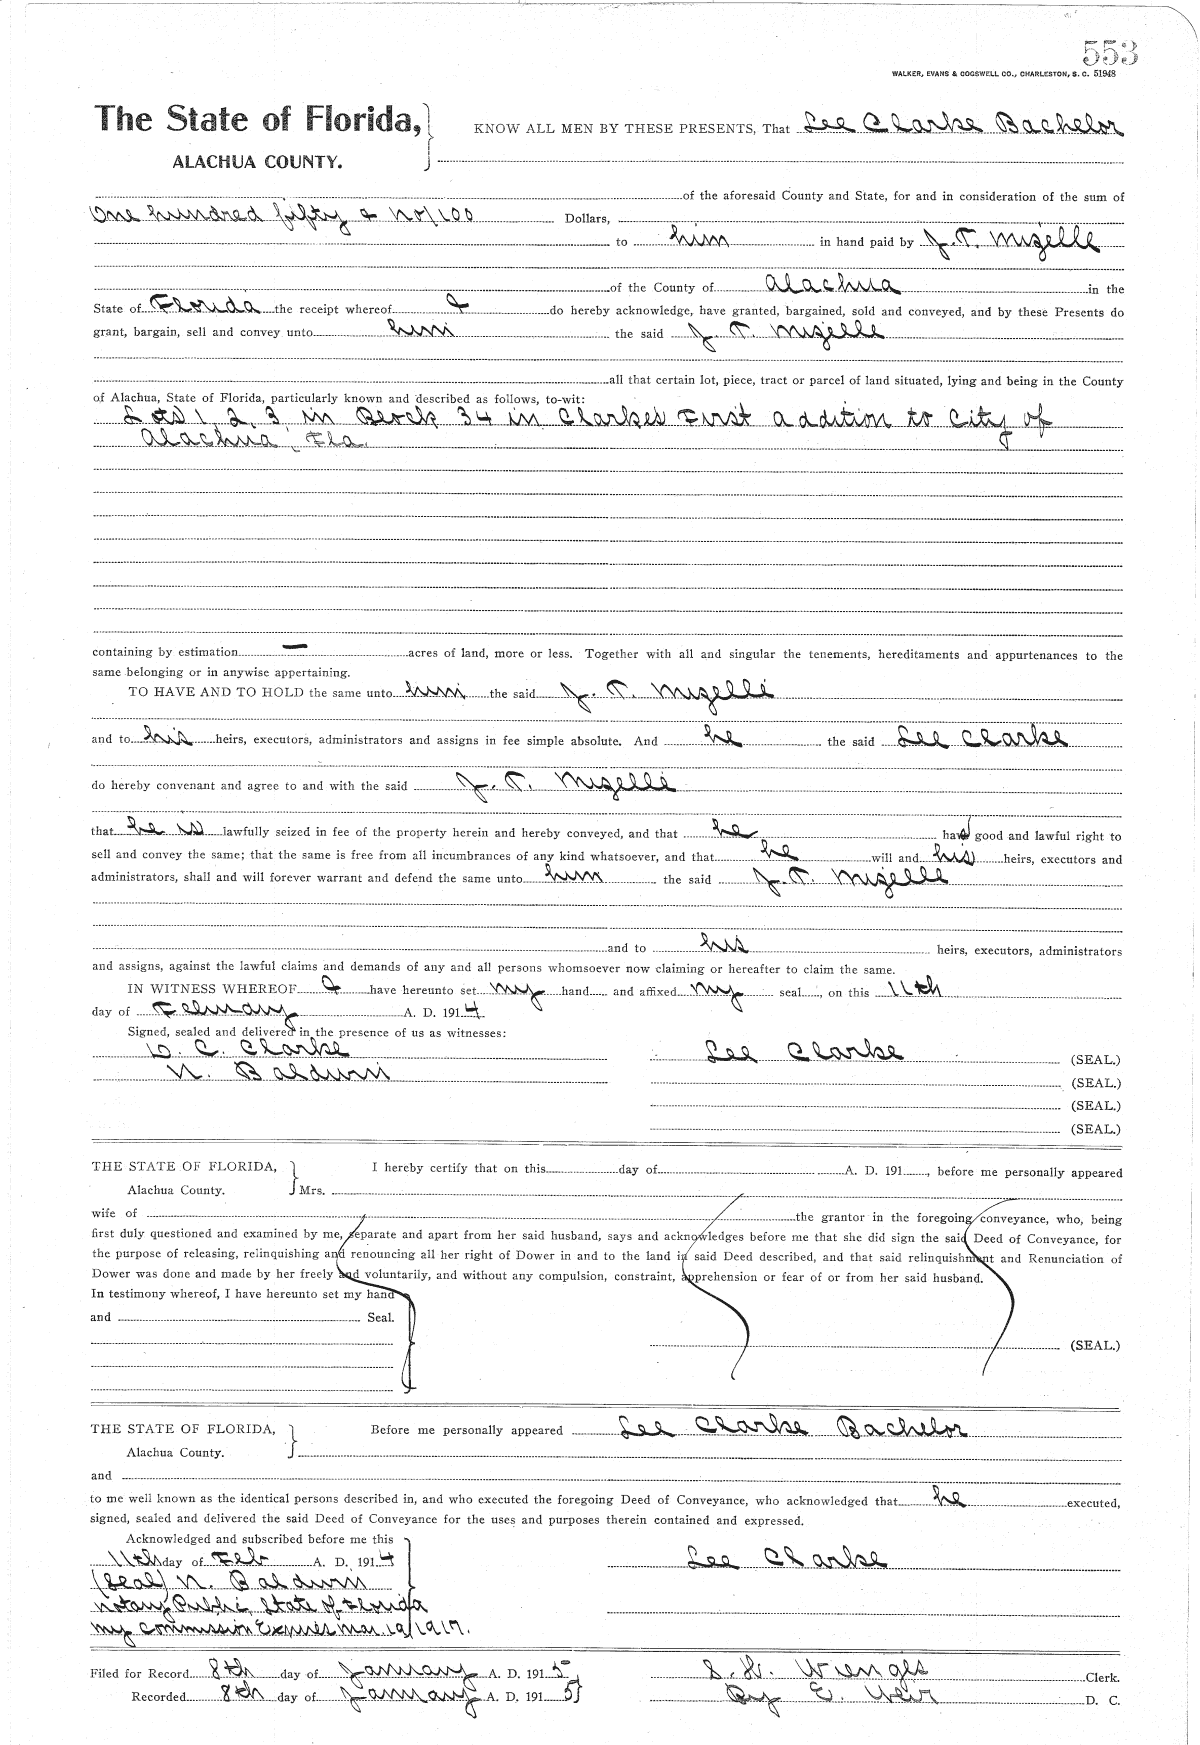 553
WALKER, EVANS & COGSWELL CO., CHARLESTON, S. C. 51948
The State of Florida,
ALACHUA COUNTY.
KNOW ALL MEN BY THESE PRESENTS, That Lee Clarke Bachelor
of the aforesaid County and State, for and in consideration of the sum of
One hundred fifty & no/100 Dollars,
to him in hand paid by J. T. Mizelle
of the County of Alachua in the
State of Florida the receipt whereof I do hereby acknowledge, have granted, bargained, sold and conveyed, and by these Presents do
grant, bargain, sell and convey unto him the said J. T. Mizelle
all that certain lot, piece, tract or parcel of land situated, lying and being in the County
of Alachua, State of Florida, particularly known and described as follows, to-wit:
Lots 1, 2, 3, in Block 34 in Clarkes First addition to City of
Alachua, Fla.
containing by estimation — acres of land, more or less. Together with all and singular the tenements, hereditaments and appurtenances to the
same belonging or in anywise appertaining.
TO HAVE AND TO HOLD the same unto him the said J. T. Mizelle
and to his heirs, executors, administrators and assigns in fee simple absolute. And he the said Lee Clarke
do hereby convenant and agree to and with the said J. T. Mizelle
that he is lawfully seized in fee of the property herein and hereby conveyed, and that he has good and lawful right to
sell and convey the same; that the same is free from all incumbrances of any kind whatsoever, and that he will and his heirs, executors and
administrators, shall and will forever warrant and defend the same unto him the said J. T. Mizelle
and to his heirs, executors, administrators
and assigns, against the lawful claims and demands of any and all persons whomsoever now claiming or hereafter to claim the same.
IN WITNESS WHEREOF I have hereunto set my hand and affixed my seal, on this 11th
day of February A. D. 1914.
Signed, sealed and delivered in the presence of us as witnesses:
C. Clarke
N. Baldwin
Lee Clarke (SEAL.)
(SEAL.)
(SEAL.)
(SEAL.)
THE STATE OF FLORIDA,
Alachua County.
I hereby certify that on this day of A. D. 191, before me personally appeared
Mrs.
wife of the grantor in the foregoing conveyance, who, being
first duly questioned and examined by me, separate and apart from her said husband, says and acknowledges before me that she did sign the said Deed of Conveyance, for
the purpose of releasing, relinquishing and renouncing all her right of Dower in and to the land in said Deed described, and that said relinquishment and Renunciation of
Dower was done and made by her freely and voluntarily, and without any compulsion, constraint, apprehension or fear of or from her said husband.
In testimony whereof, I have hereunto set my hand
and Seal.
(SEAL.)
THE STATE OF FLORIDA,
Alachua County.
Before me personally appeared Lee Clarke Bachelor
and
to me well known as the identical persons described in, and who executed the foregoing Deed of Conveyance, who acknowledged that he executed,
signed, sealed and delivered the said Deed of Conveyance for the uses and purposes therein contained and expressed.
Acknowledged and subscribed before me this
11th day of Feb A. D. 1914
(Seal) N. Baldwin
Notary Public, State of Florida
my Commission Expires Mar. 19/1917.
Lee Clarke
Filed for Record 8th day of January A. D. 1915
Recorded 8th day of January A. D. 1915
Wienges Clerk.
By E. Weir D. C.